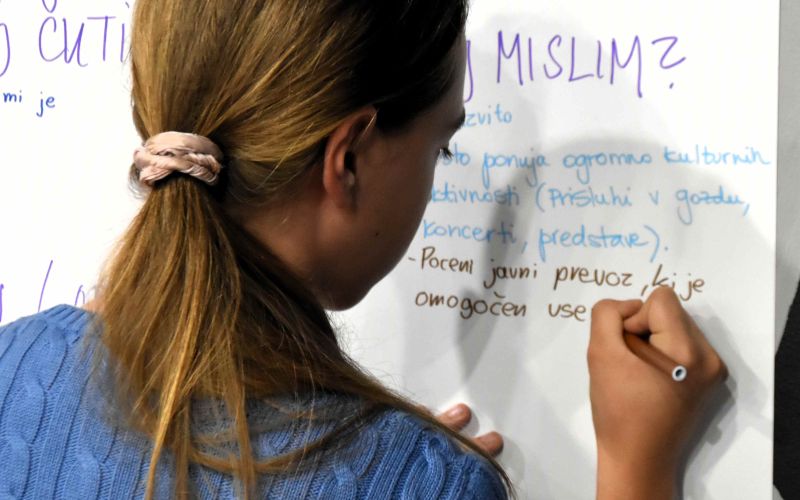 ČUTI
mi je
MISLIM?
ponuja ogromno kulturnih
(prisluhi v gozdu,
koncerti, predstave).
- Poceni javni prevoz, ki je
omogočen vse